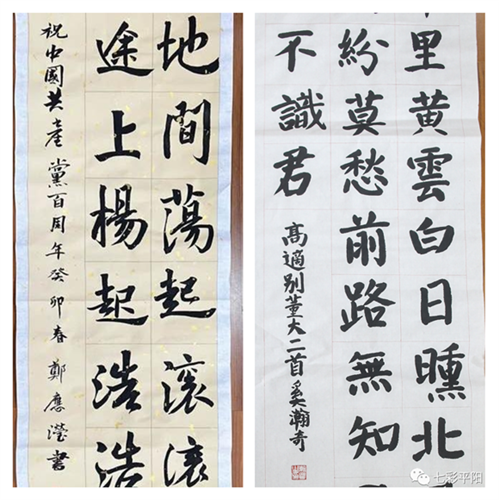 地間蕩起滚滚
途上楊起浩浩
祝中國共產黨百周年癸卯春鄭應瀅書
里黄雲白日曛北
紛莫愁前路無知
不識君
高適别董大二首奚瀚奇
七彩平阳